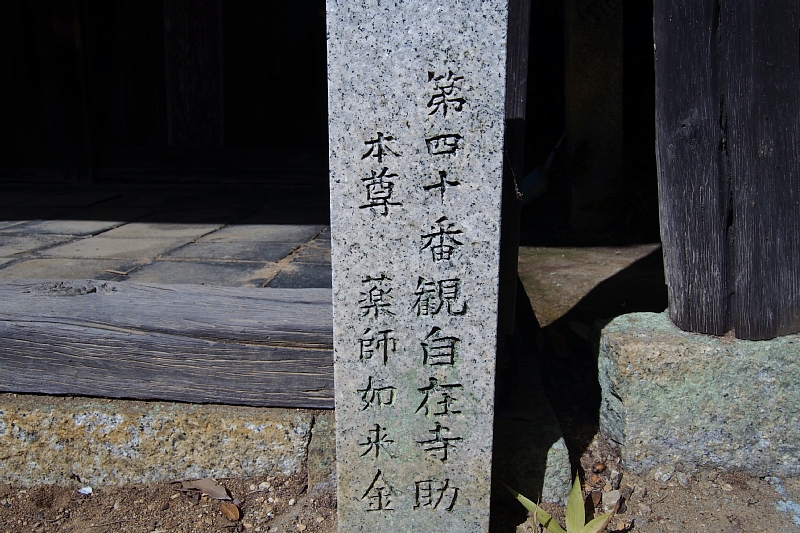 第四十番観自在寺助
本尊 薬師如来金